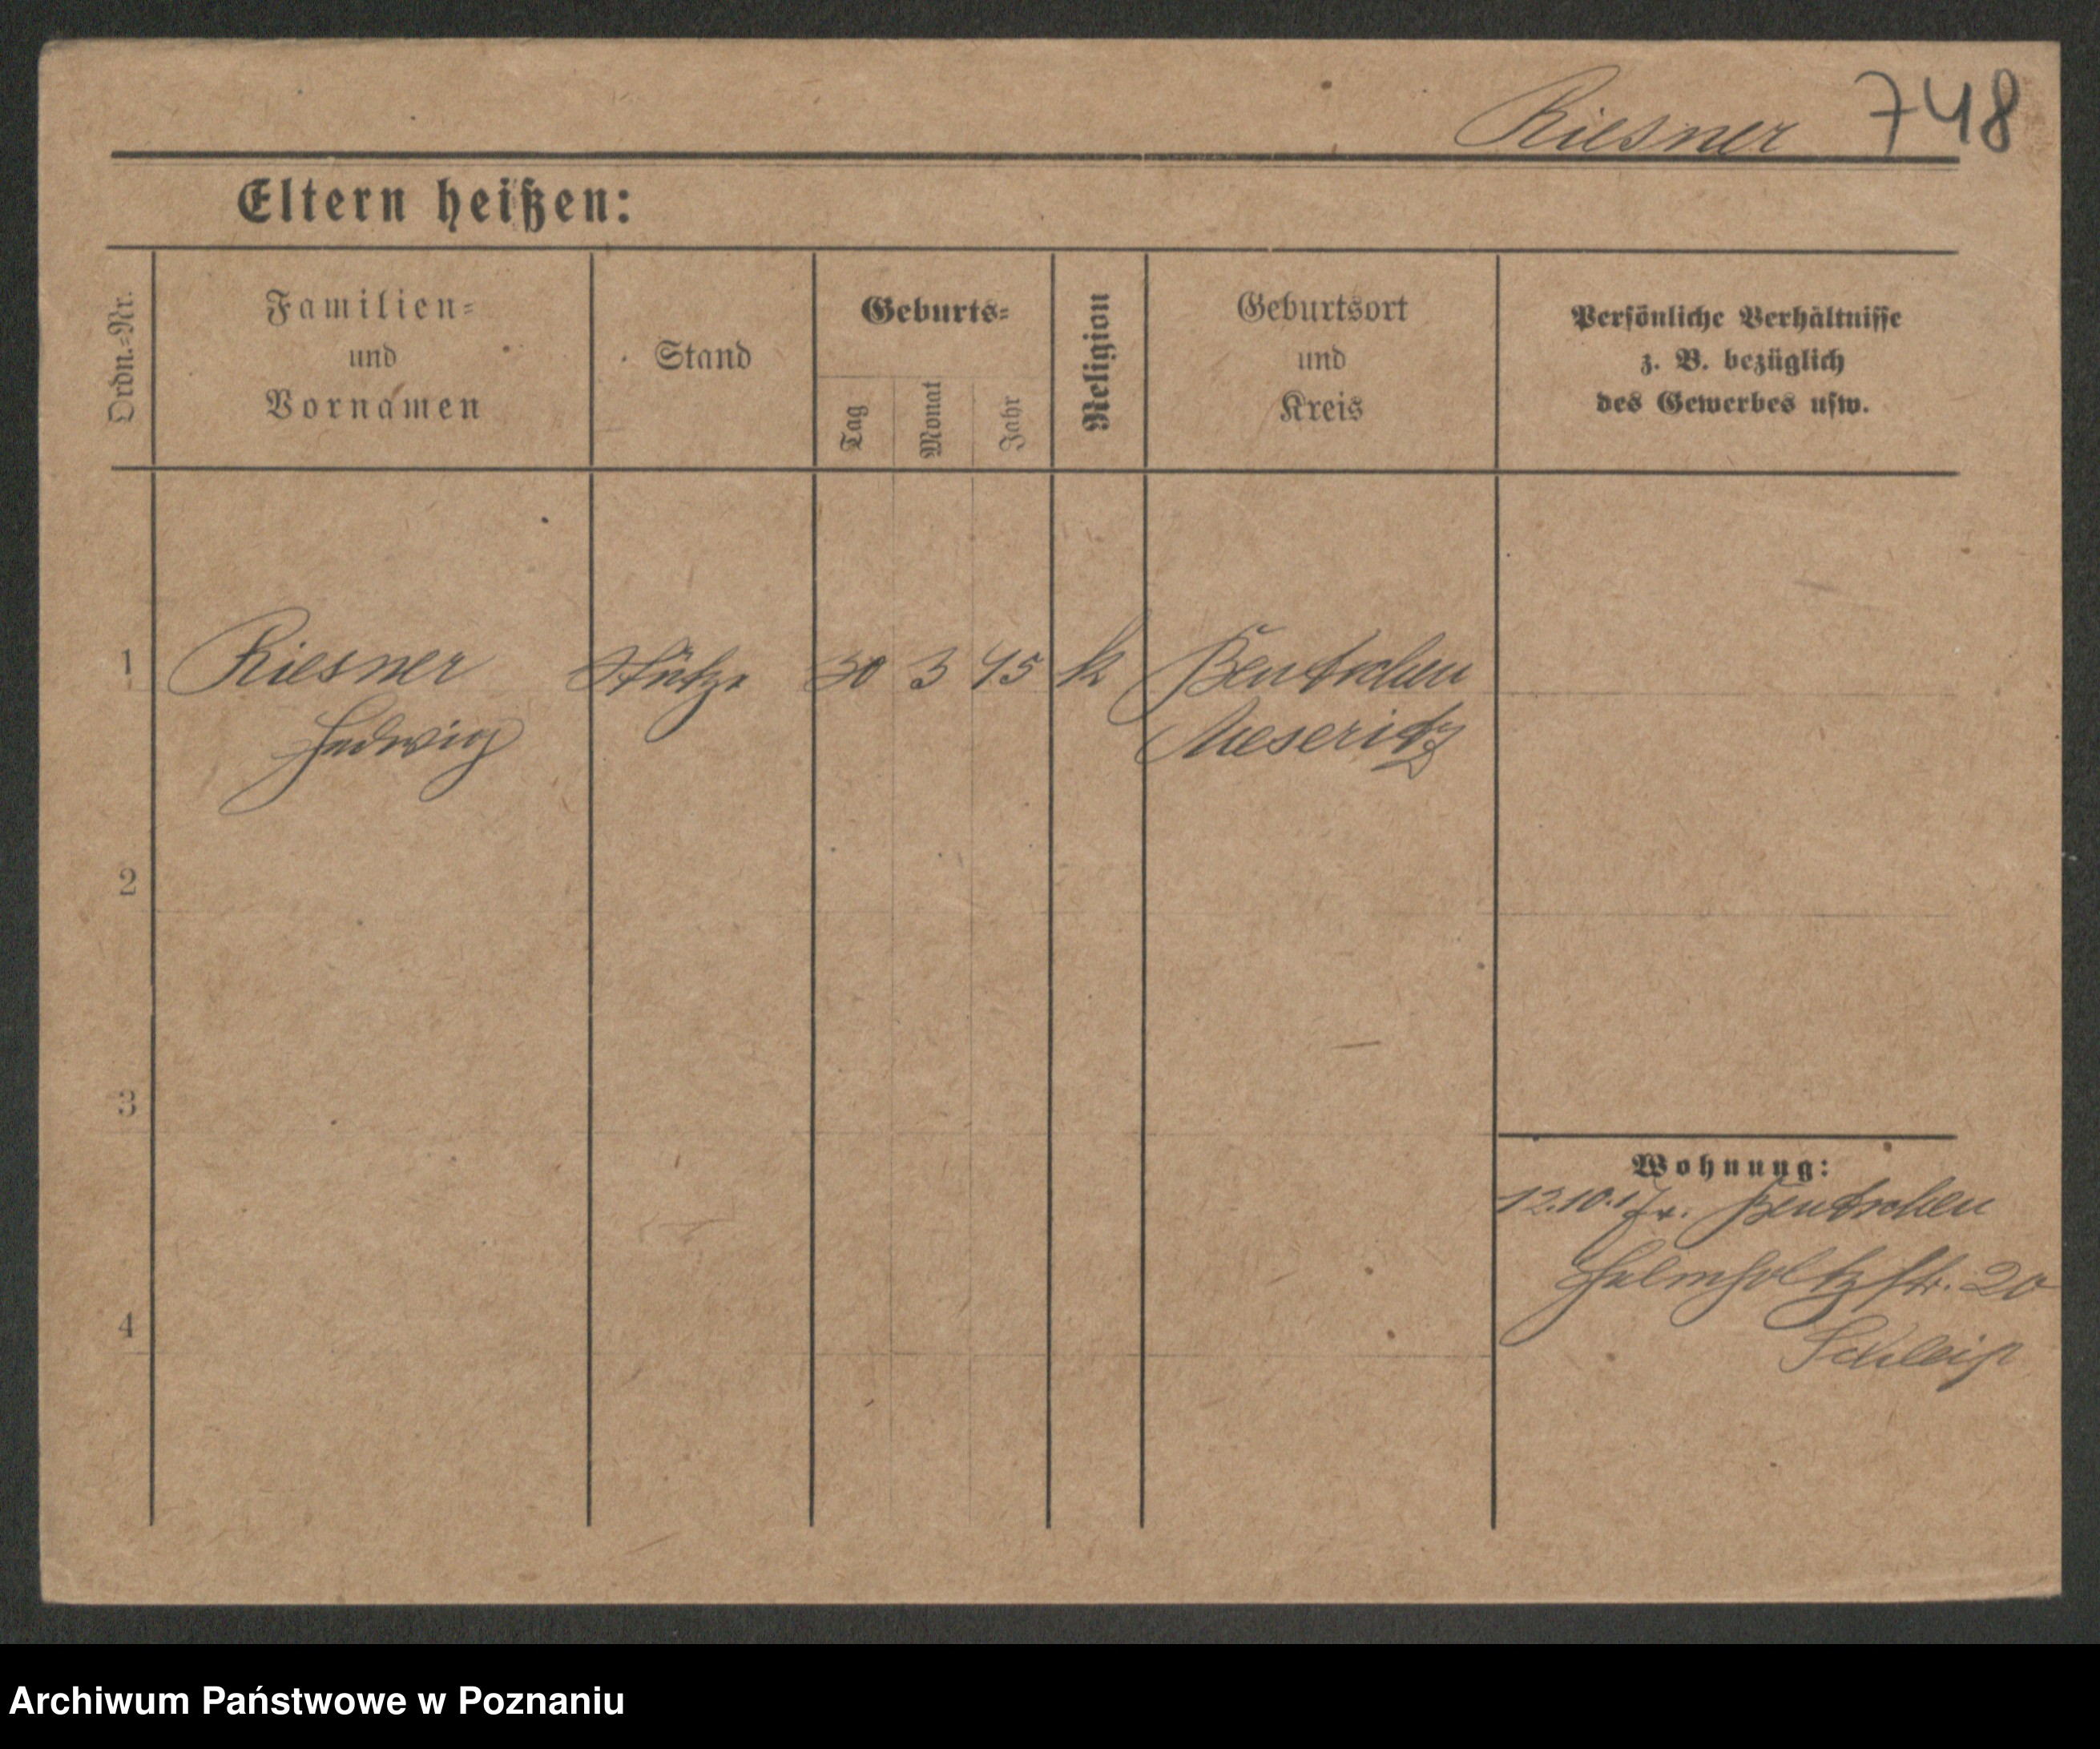 Riesner 748
Eltern heißen:
Ordn.-Nr.
Familien-
und
Vornamen
Stand
Geburts-
Tag
Monat
Jahr
Religion
Geburtsort
und
Kreis
Persönliche Verhältnisse
z. B. bezüglich
des Gewerbes usw.
1 Riesner Stütze 30 3 95 k Bentschen
Hedwig Meseritz
2
3
4
Wohnung:
12.10.17 v. Bentschen
Helmholtzstr. 20
Archiwum Państwowe w Poznaniu